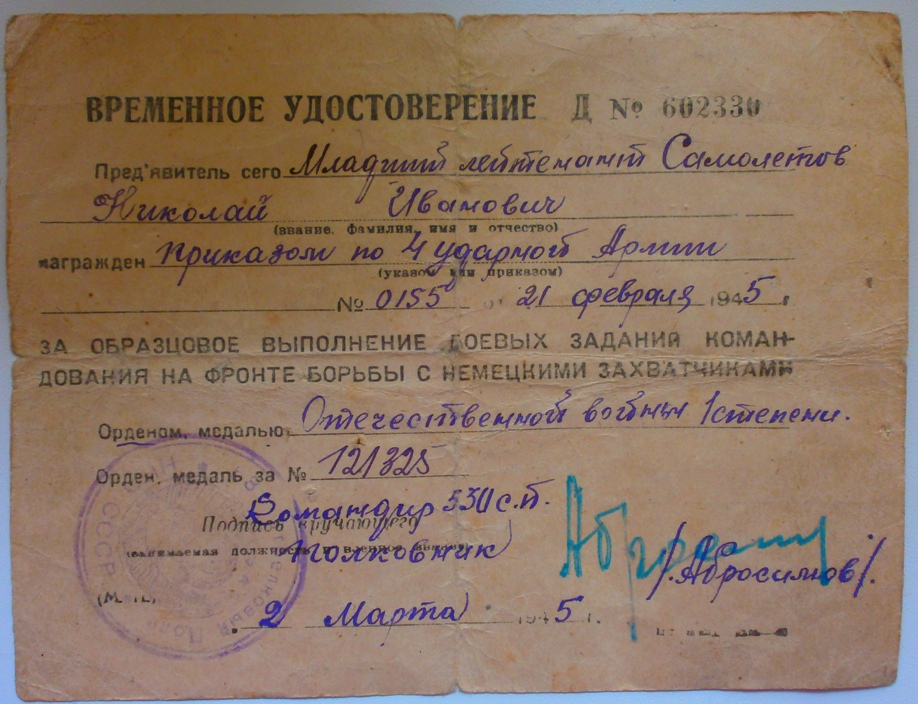 ВРЕМЕННОЕ УДОСТОВЕРЕНИЕ Д № 602330
Пред'явитель сего Младший лейтенант Самолетов
Николай Иванович
(звание, фамилия, имя и отчество)
награжден приказом по 4 ударной Армии
(указом или приказом)
№ 0155 от 21 февраля 1945 г
ЗА ОБРАЗЦОВОЕ ВЫПОЛНЕНИЕ БОЕВЫХ ЗАДАНИЙ КОМАН-
ДОВАНИЯ НА ФРОНТЕ БОРЬБЫ С НЕМЕЦКИМИ ЗАХВАТЧИКАМИ
Орденом, медалью Отечественной войны 1 степени.
Орден, медаль за № 121325
Командир 530 с.п.
Подпись вручающего
(занимаемая должность и военное звание)
Полковник
/Абросимов/.
(М. П.)
2 Марта 1945 г.